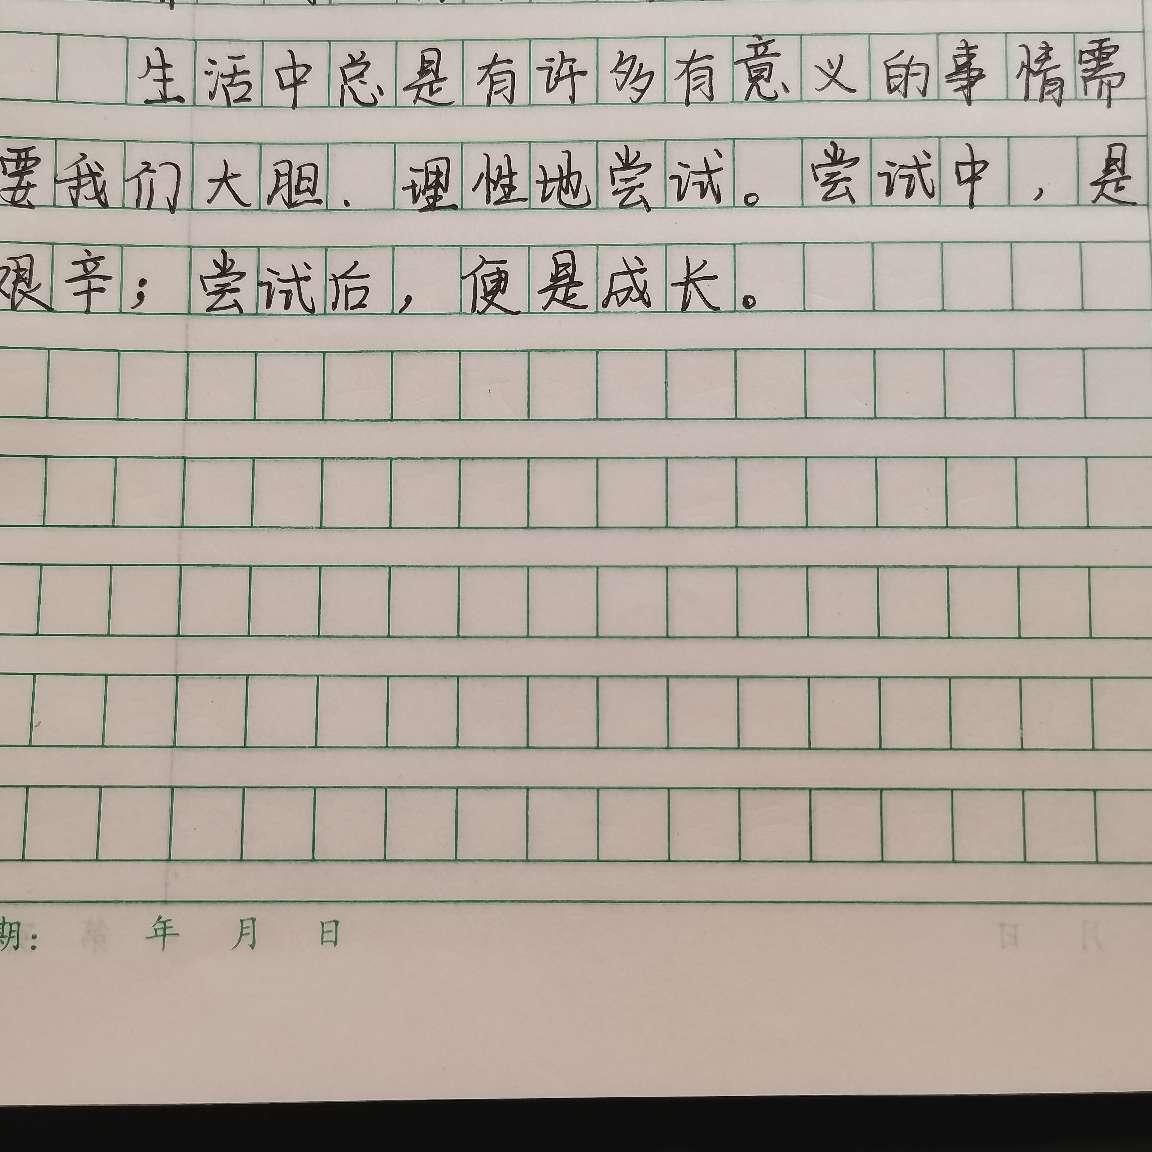 生活中总是有许多有意义的事情需
要我们大胆、理性地尝试。尝试中，是
艰辛；尝试后，便是成长。
期： 年 月 日